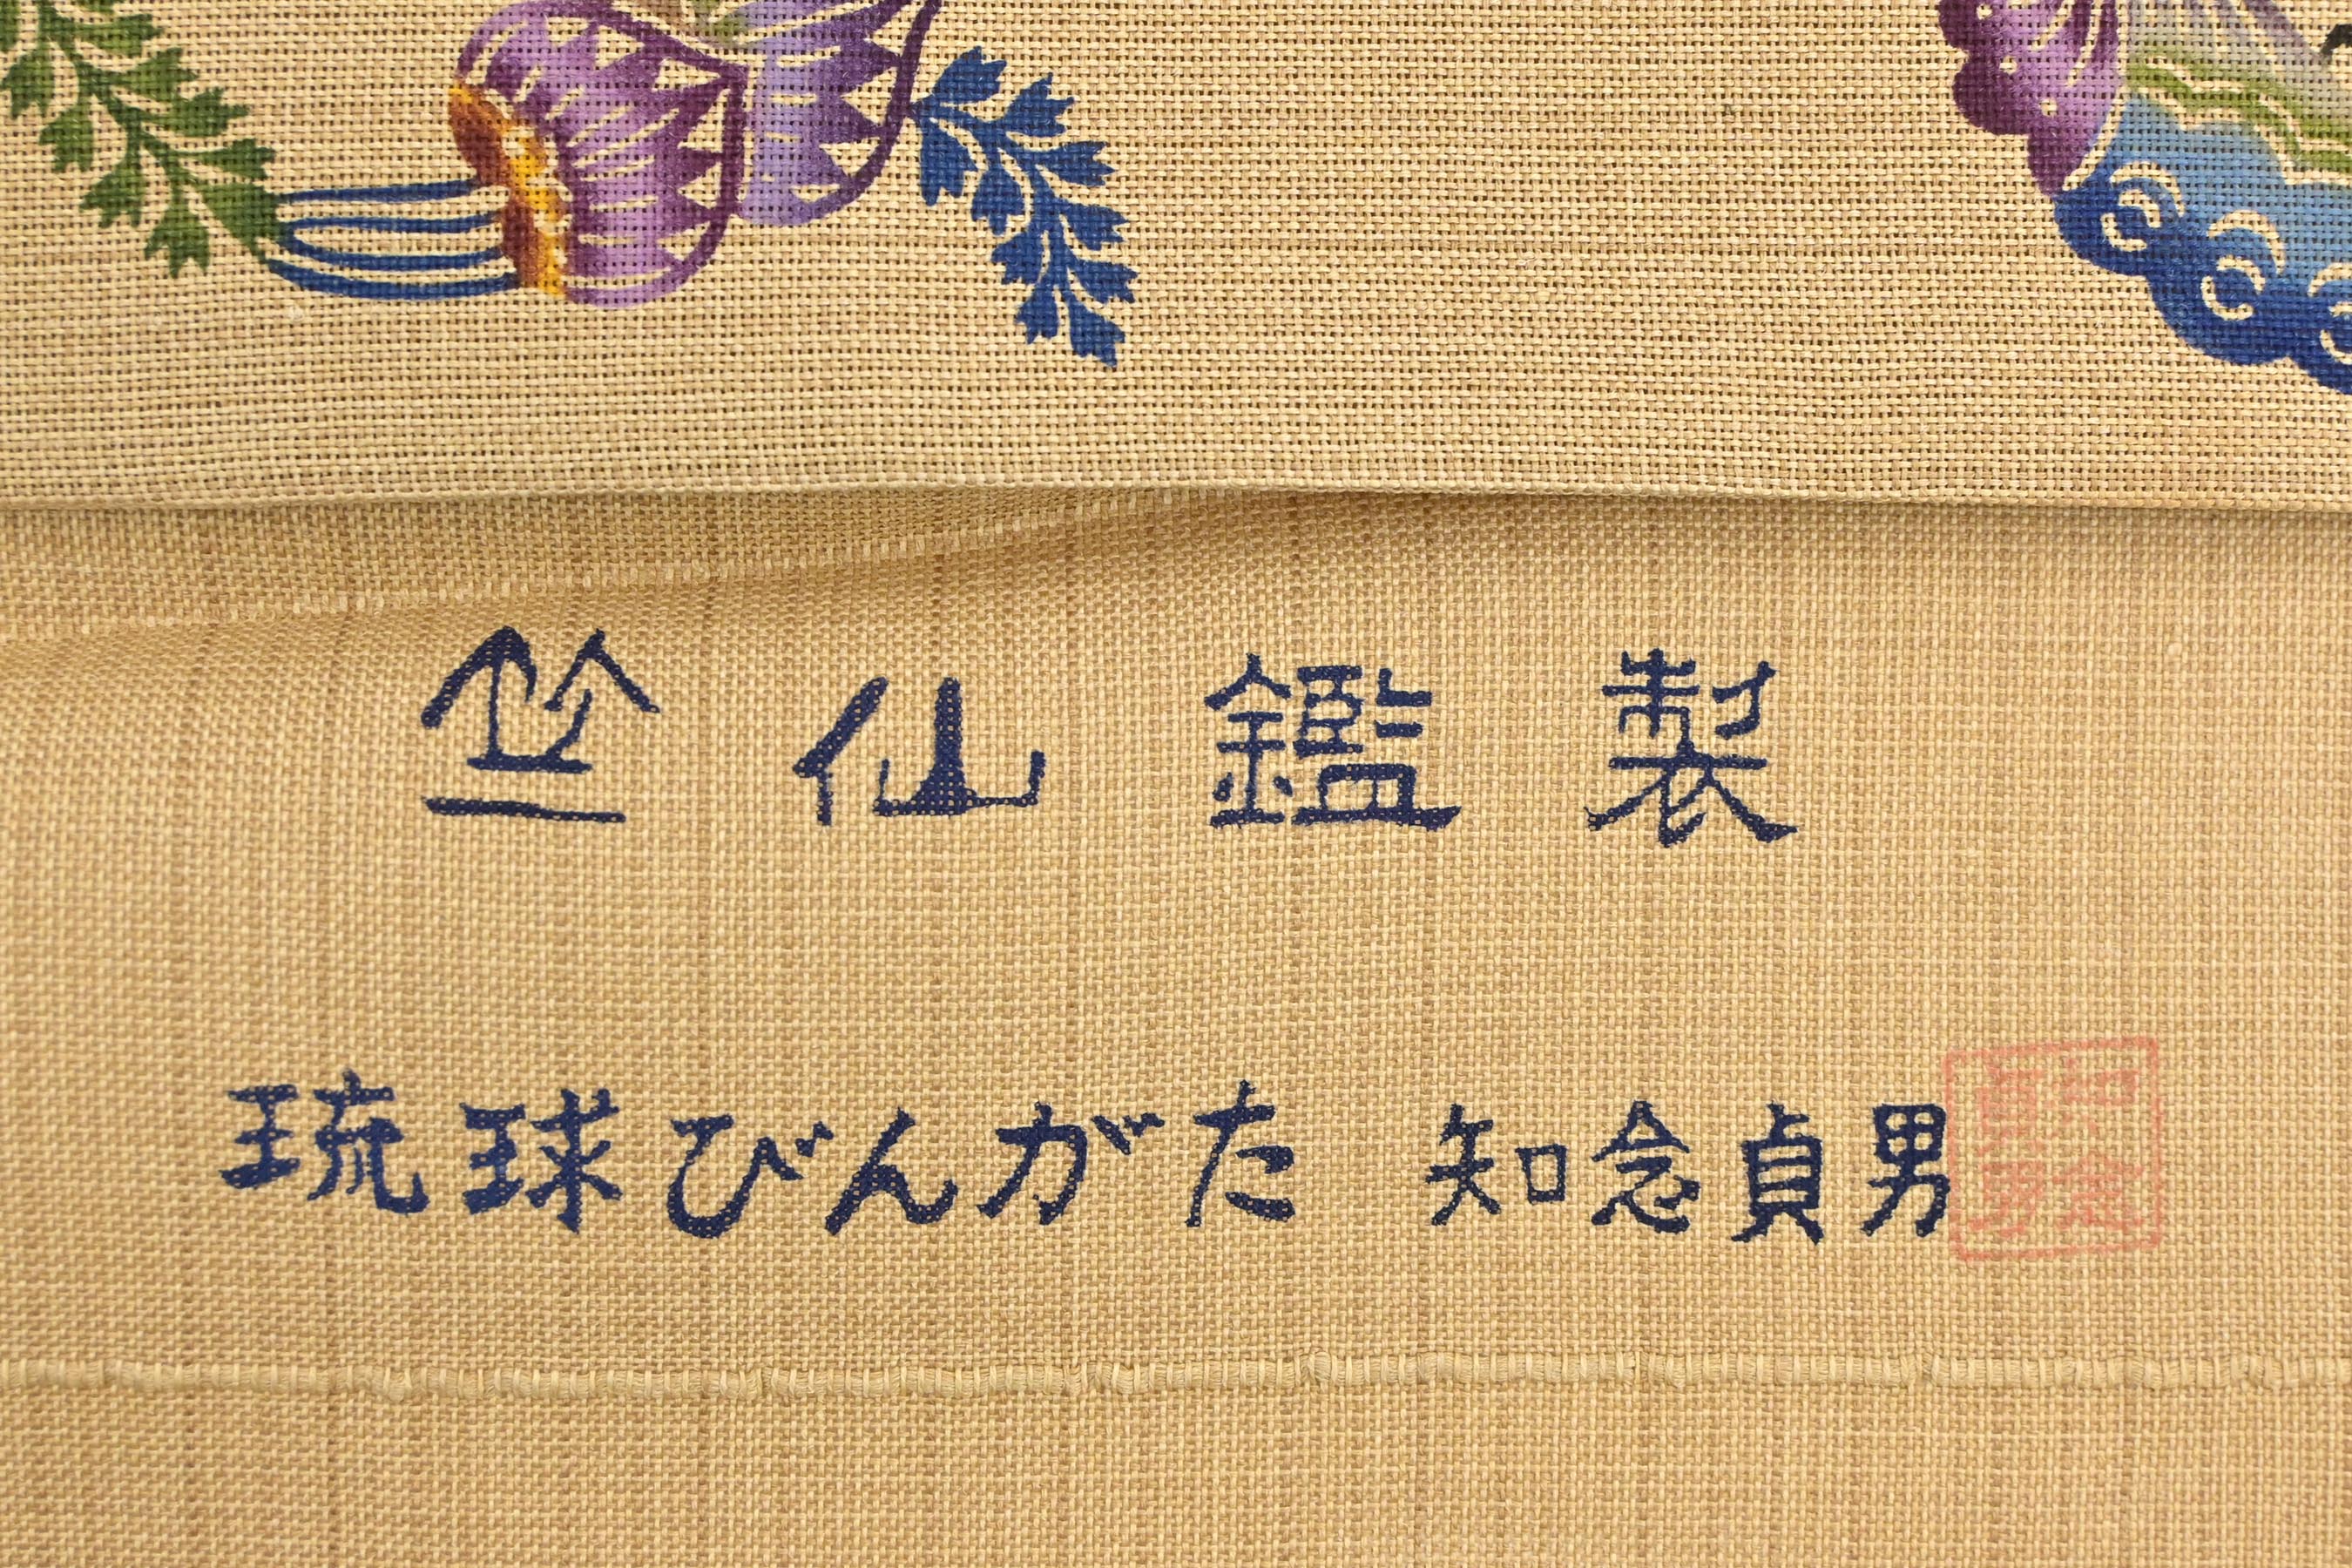 竺仙鑑製
琉球びんがた 知念貞男
知念貞男